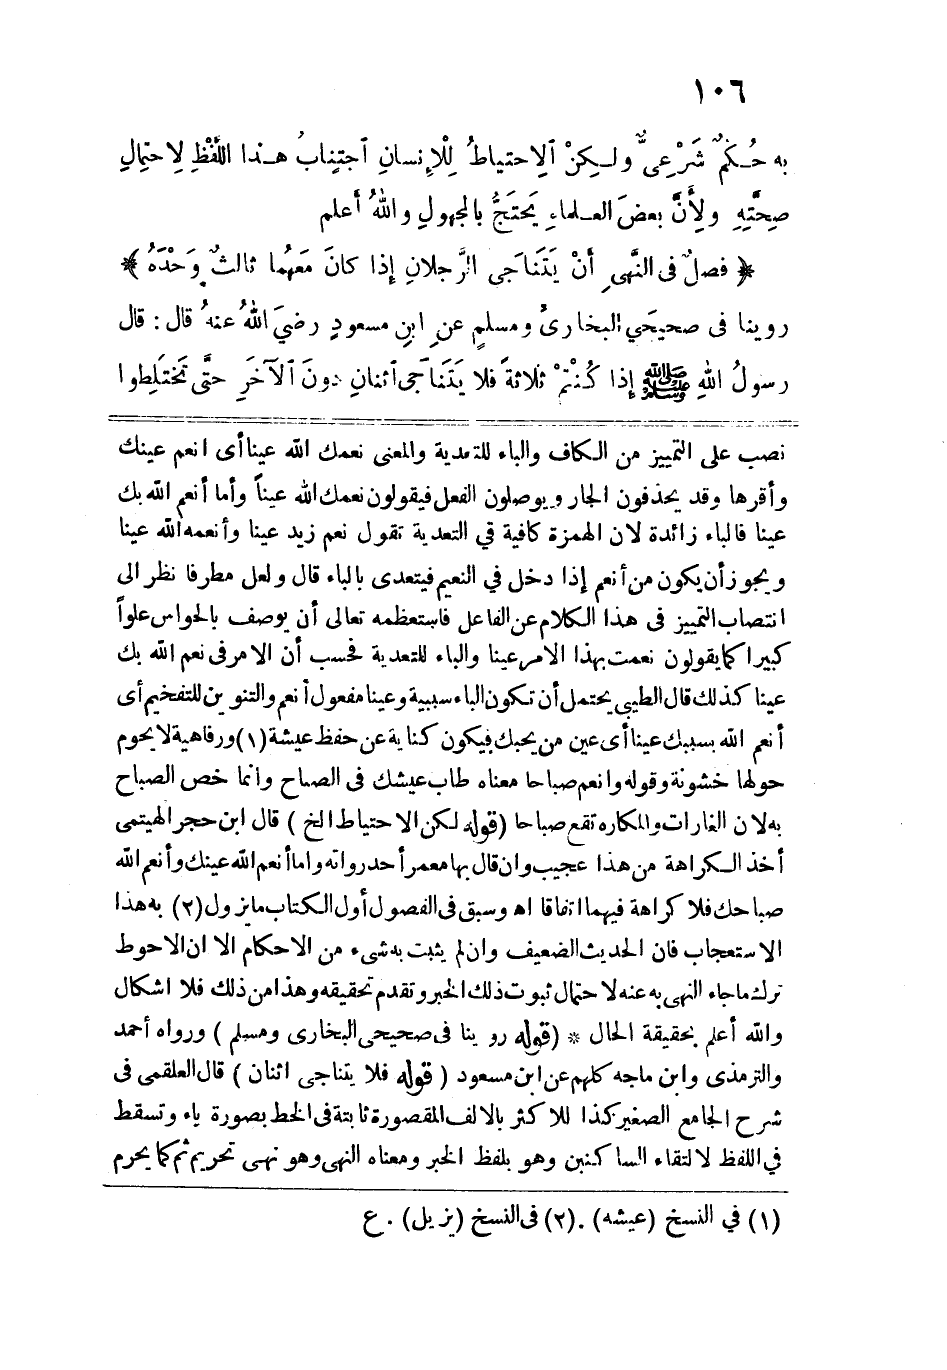 ١٠٦
به حُكْمٌ شَرْعِىٌّ ولـكِنْ ٱلِاحتياطُ لِلْإِنسانِ ٱجتِنابُ هـٰذا اللَّفْظِ لِاحتمالِ
صِحَّتِهِ ولِأَنَّ بعضَ العـلماءِ يَحتَجُّ بالمجهولِ واللهُ أعلم
﴿ فصلٌ فى النَّهىِ أَنْ يَتَناجَى الرَّجلانِ إذا كانَ مَعَهُما ثالثٌ وَحْدَهُ ﴾
روينا فى صحيحَي البخارىُ ومسلمٍ عن ابنِ مسعودٍ رضيَ اللهُ عنهُ قال : قال
رسولُ اللهِ ﷺ إذا كُنْتُمْ ثلاثةً فلا يَتَنَاجَى ٱثنانِ دونَ الْآخَرِ حتَّى تَختَلِطوا
نصب على التمييز من الكاف والباء للتعدية والمعنى نعمك الله عينا أى انعم عينك
وأقرها وقد يحذفون الجار ويوصلون الفعل فيقولون نعمك الله عيناً وأما أنعم الله بك
عينا فالباء زائدة لان الهمزة كافية في التعدية تقول نعم زيد عينا وأنعمه الله عينا
ويجوز أن يكون من أنعم إذا دخل في النعيم فيتعدى بالباء قال ولعل مطرفا نظر الى
انتصاب التمييز فى هذا الكلام عن الفاعل فاستعظمه تعالى أن يوصف بالحواس علواً
كبيرا كما يقولون نعمت بهذا الامر عينا والباء للتعدية فحسب أن الامر فى نعم الله بك
عينا كذلك قال الطيبى يحتمل أن تكون الباء سببية وعينا مفعول أنعم والتنوين للتفخيم أى
أنعم الله بسببك عينا أى عين من يحبك فيكون كناية عن حفظ عيشة (١) ورفاهية لا يحوم
حولها خشونة وقوله وانعم صباحا معناه طاب عيشك فى الصباح وانما خص الصباح
به لان الغارات والمكاره تقع صباحا (قوله لكن الاحتياط الخ) قال ابن حجر الهيتمى
أخذ الكراهة من هذا عجيب وان قال بها معمر أحد رواته واما أنعم الله عينك وأنعم الله
صباحك فلا كراهة فيهما اتفاقا اه وسبق فى الفصول أول الكتاب ما يزول (٢) به هذا
الاستعجاب فان الحديث الضعيف وان لم يثبت به شيء من الاحكام الا ان الاحوط
ترك ما جاء النهى به عنه لاحتمال ثبوت ذلك الخبر وتقدم تحقيقه وهذا من ذلك فلا اشكال
والله أعلم بحقيقة الحال * (قوله روينا فى صحيحى البخارى ومسلم) ورواه أحمد
والترمذى وابن ماجه كلهم عن ابن مسعود (قوله فلا يتناجى اثنان) قال العلقمى فى
شرح الجامع الصغير كذا للاكثر بالالف المقصورة ثابتة فى الخط بصورة ياء وتسقط
في اللفظ لالتقاء الساكنين وهو بلفظ الخبر ومعناه النهى وهو نهى تحريم ثم كما يحرم
(١) في النسخ (عيشه) . (٢) فى النسخ (يزيل) . ع